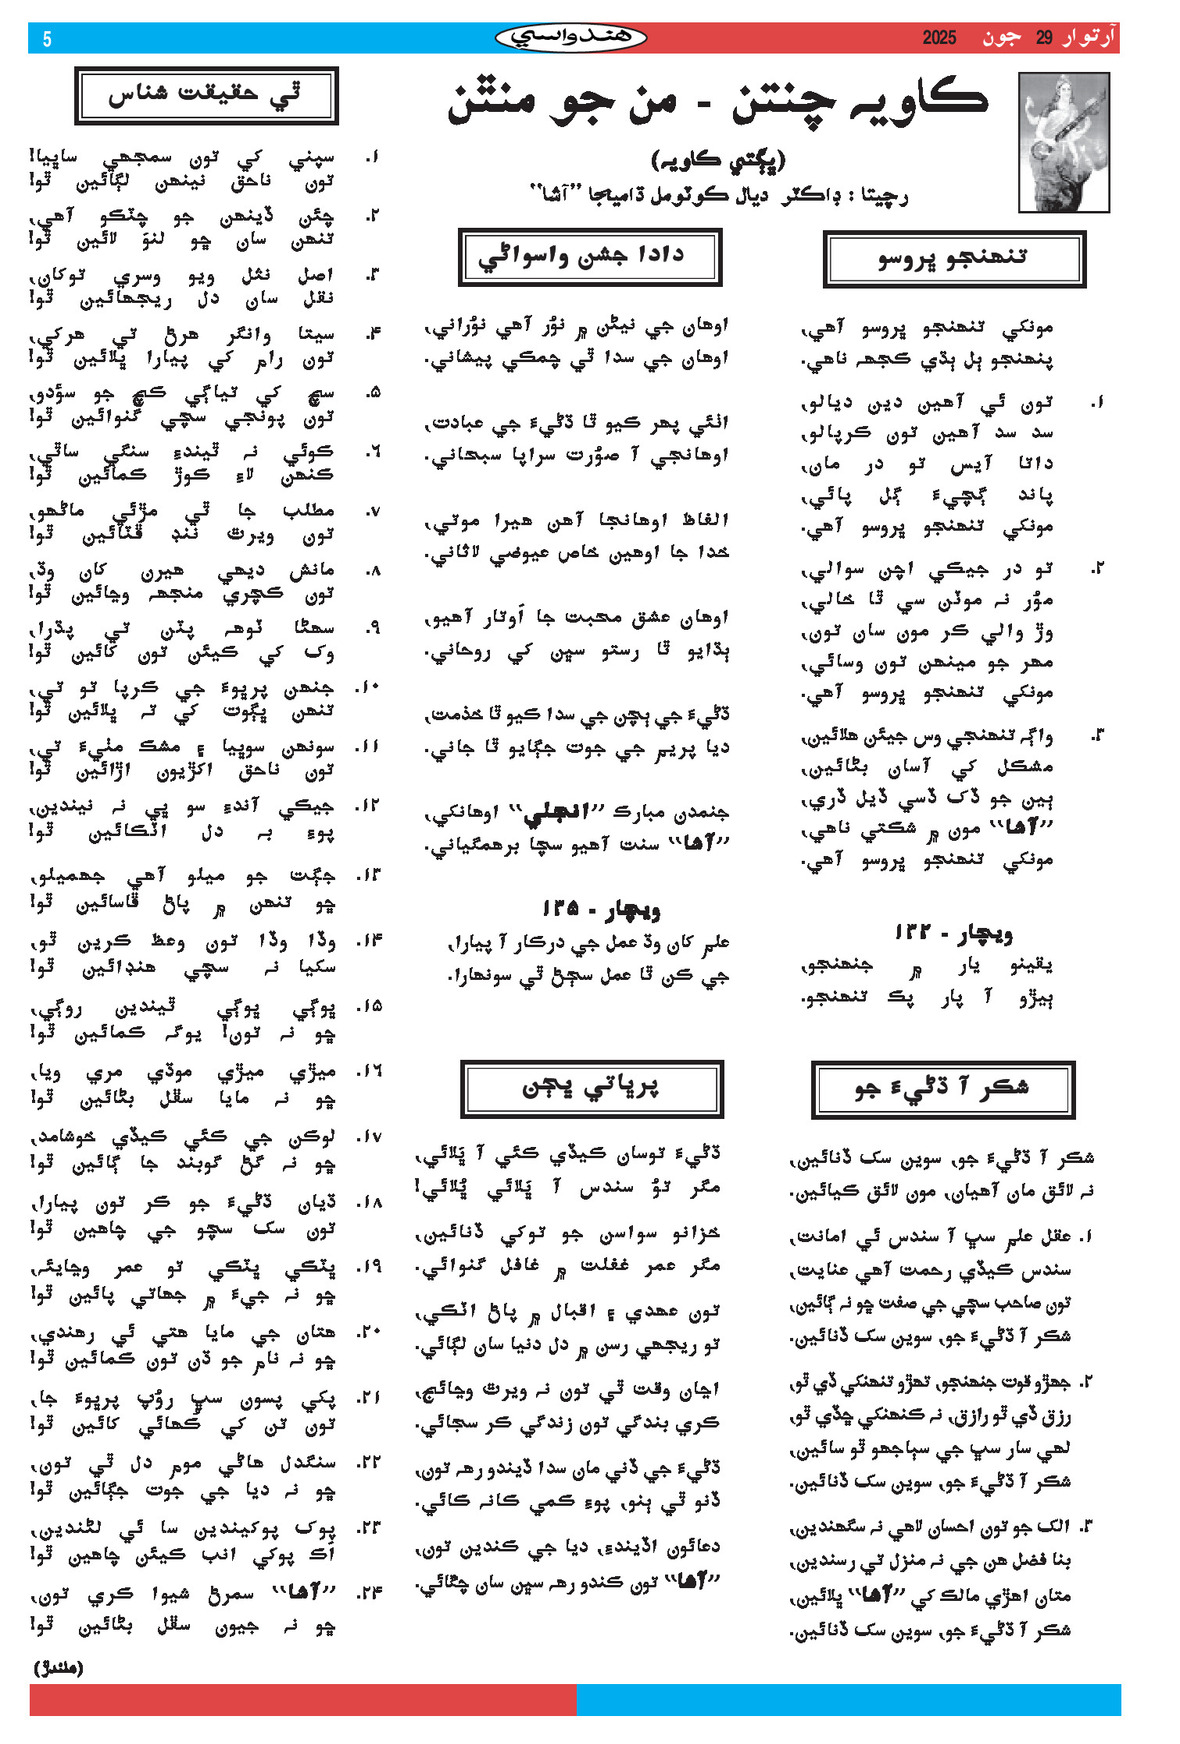 آرتوار 29 جون 2025
هندواسي
5
ڪاويہ چنتن - من جو منٿن
(ڀڳتي ڪاويہ)
رچيتا : ڊاڪٽر ديال ڪوٽومل ڌاميجا ”آشا“
تنهنجو ڀروسو
مونکي تنهنجو ڀروسو آهي،
پنهنجو ٻل ٻڌي ڪجهہ ناهي.
۱. تون ئي آهين دين ديالو،
سد سد آهين تون ڪرپالو،
داتا آيس تو در مان،
پاند ڳچيءَ ڳل پائي،
مونکي تنهنجو ڀروسو آهي.
۲. تو در جيڪي اچن سوالي،
موُر نہ موٽن سي ٿا خالي،
وڙ والي ڪر مون سان تون،
مهر جو مينهن تون وسائي،
مونکي تنهنجو ڀروسو آهي.
۳. واڳہ تنهنجي وس جيئن هلائين،
مشڪل کي آسان بڻائين،
ٻين جو ڏک ڏسي ڏيل ڏري،
”آشا“ مون ۾ شڪتي ناهي،
مونکي تنهنجو ڀروسو آهي.
ويچار - ۱۳۲
يقينو يار ۾ جنهنجو،
ٻيڙو آ پار پڪ تنهنجو.
شڪر آ ڌڻيءَ جو
شڪر آ ڌڻيءَ جو، سوين سک ڏنائين،
نہ لائق مان آهيان، مون لائق ڪيائين.
۱. عقل علم سڀ آ سندس ئي امانت،
سندس ڪيڏي رحمت آهي عنايت،
تون صاحب سچي جي صفت ڇو نہ ڳائين،
شڪر آ ڌڻيءَ جو، سوين سک ڏنائين.
۲. جهڙو قوت جنهنجو، تهڙو تنهنکي ڏي ٿو،
رزق ڏي ٿو رازق، نہ ڪنهنکي ڇڏي ٿو،
لهي سار سڀ جي سٻاجهو ٿو سائين،
شڪر آ ڌڻيءَ جو، سوين سک ڏنائين.
۳. الک جو تون احسان لاهي نہ سگهندين،
بنا فضل هن جي نہ منزل تي رسندين،
متان اهڙي مالڪ کي ”آشا“ ڀلائين،
شڪر آ ڌڻيءَ جو، سوين سک ڏنائين.
دادا جشن واسواڻي
اوهان جي نيڻن ۾ نوُر آهي نوُراني،
اوهان جي سدا ٿي چمڪي پيشاني.
اٺئي پهر ڪيو ٿا ڌڻيءَ جي عبادت،
اوهانجي آ صوُرت سراپا سبحاني.
الفاظ اوهانجا آهن هيرا موتي،
خدا جا اوهين خاص عيوضي لاثاني.
اوهان عشق محبت جا اَوتار آهيو،
ٻڌايو ٿا رستو سڀن کي روحاني.
ڌڻيءَ جي ٻچن جي سدا ڪيو ٿا خذمت،
ديا پريم جي جوت جڳايو ٿا جاني.
جنمدن مبارڪ ”انجلي“ اوهانکي،
”آشا“ سنت آهيو سچا برهمگياني.
ويچار - ۱۳۵
علم کان وڌ عمل جي درڪار آ پيارا،
جي ڪن ٿا عمل سڄڻ ٿي سونهارا.
پرڀاتي ڀڄن
ڌڻيءَ توسان ڪيڏي ڪئي آ ڀَلائي،
مگر توُ سندس آ ڀَلائي ڀُلائي!
خزانو سواسن جو توکي ڏنائين،
مگر عمر غفلت ۾ غافل گنوائي.
تون عهدي ۽ اقبال ۾ پاڻ اٽڪي،
تو ريجهي رسن ۾ دل دنيا سان لڳائي.
اڃان وقت ٿي تون نہ ويرٿ وڃائج،
ڪري بندگي تون زندگي ڪر سجائي.
ڌڻيءَ جي ڏني مان سدا ڏيندو رهہ تون،
ڏنو ٿي ٻنو، پوءِ ڪمي ڪانہ ڪائي.
دعائون اڏيندءِ، ديا جي ڪندين تون،
”آشا“ تون ڪندو رهہ سڀن سان چڱائي.
ٿي حقيقت شناس
۱. سپني کي تون سمجهي ساڀيا!
تون ناحق نينهن لڳائين ٿو!
۲. چئن ڏينهن جو چٽڪو آهي،
تنهن سان ڇو لنوَ لائين ٿو!
۳. اصل نڪل ويو وسري توکان،
نقل سان دل ريجهائين ٿو!
۴. سيتا وانگر هرڻ تي هرکي،
تون رام کي پيارا ڀلائين ٿو!
۵. سچ کي تياڳي ڪچ جو سؤدو،
تون پونجي سچي گنوائين ٿو!
۶. ڪوئي نہ ٿيندءِ سنگي ساٿي،
ڪنهن لاءِ ڪوڙ ڪمائين ٿو!
۷. مطلب جا ٿي مڙئي ماڻهو،
تون ويرٿ ننڊ ڦٽائين ٿو!
۸. مانش ديهي هيرن کان وڌ،
تون ڪچري منجهہ وڃائين ٿو!
۹. سهڻا ٽوهہ پٽن تي پڌرا،
وک کي ڪيئن تون کائين ٿو!
۱۰. جنهن پرڀوءَ جي ڪرپا تو تي،
تنهن ڀڳوت کي تہ ڀلائين ٿو!
۱۱. سونهن سوڀيا ۽ مشڪ مٽيءَ تي،
تون ناحق اکڙيون اڙائين ٿو!
۱۲. جيڪي آندءِ سو ڀي نہ نيندين،
پوءِ بہ دل اٽڪائين ٿو!
۱۳. جڳت جو ميلو آهي جهميلو،
ڇو تنهن ۾ پاڻ ڦاسائين ٿو!
۱۴. وڏا وڏا تون وعظ ڪرين ٿو،
سکيا نہ سچي هنڊائين ٿو!
۱۵. ڀوڳي ڀوڳي ٿيندين روڳي،
ڇو نہ تون! يوگہ ڪمائين ٿو!
۱۶. ميڙي ميڙي موڏي مري ويا،
ڇو نہ مايا سڦل بڻائين ٿو!
۱۷. لوڪن جي ڪئي ڪيڏي خوشامد،
ڇو نہ گڻ گوبند جا ڳائين ٿو!
۱۸. ڌيان ڌڻيءَ جو ڪر تون پيارا،
تون سک سچو جي چاهين ٿو!
۱۹. ڀٽڪي ڀٽڪي تو عمر وڃايئہ،
ڇو نہ جيءَ ۾ جهاتي پائين ٿو!
۲۰. هتان جي مايا هتي ئي رهندي،
ڇو نہ نام جو ڌن تون ڪمائين ٿو!
۲۱. پکي پسون سڀ روُپ پرڀوءَ جا،
تون تن کي ڪُهائي کائين ٿو!
۲۲. سنگدل هاڻي موم دل ٿي تون،
ڇو نہ ديا جي جوت جڳائين ٿو!
۲۳. پوک پوکيندين سا ئي لڻندين،
اَڪ پوکي انب ڪيئن چاهين ٿو!
۲۴. ”آشا“ سمرڻ شيوا ڪري تون،
ڇو نہ جيون سڦل بڻائين ٿو!
(هلندڙ)